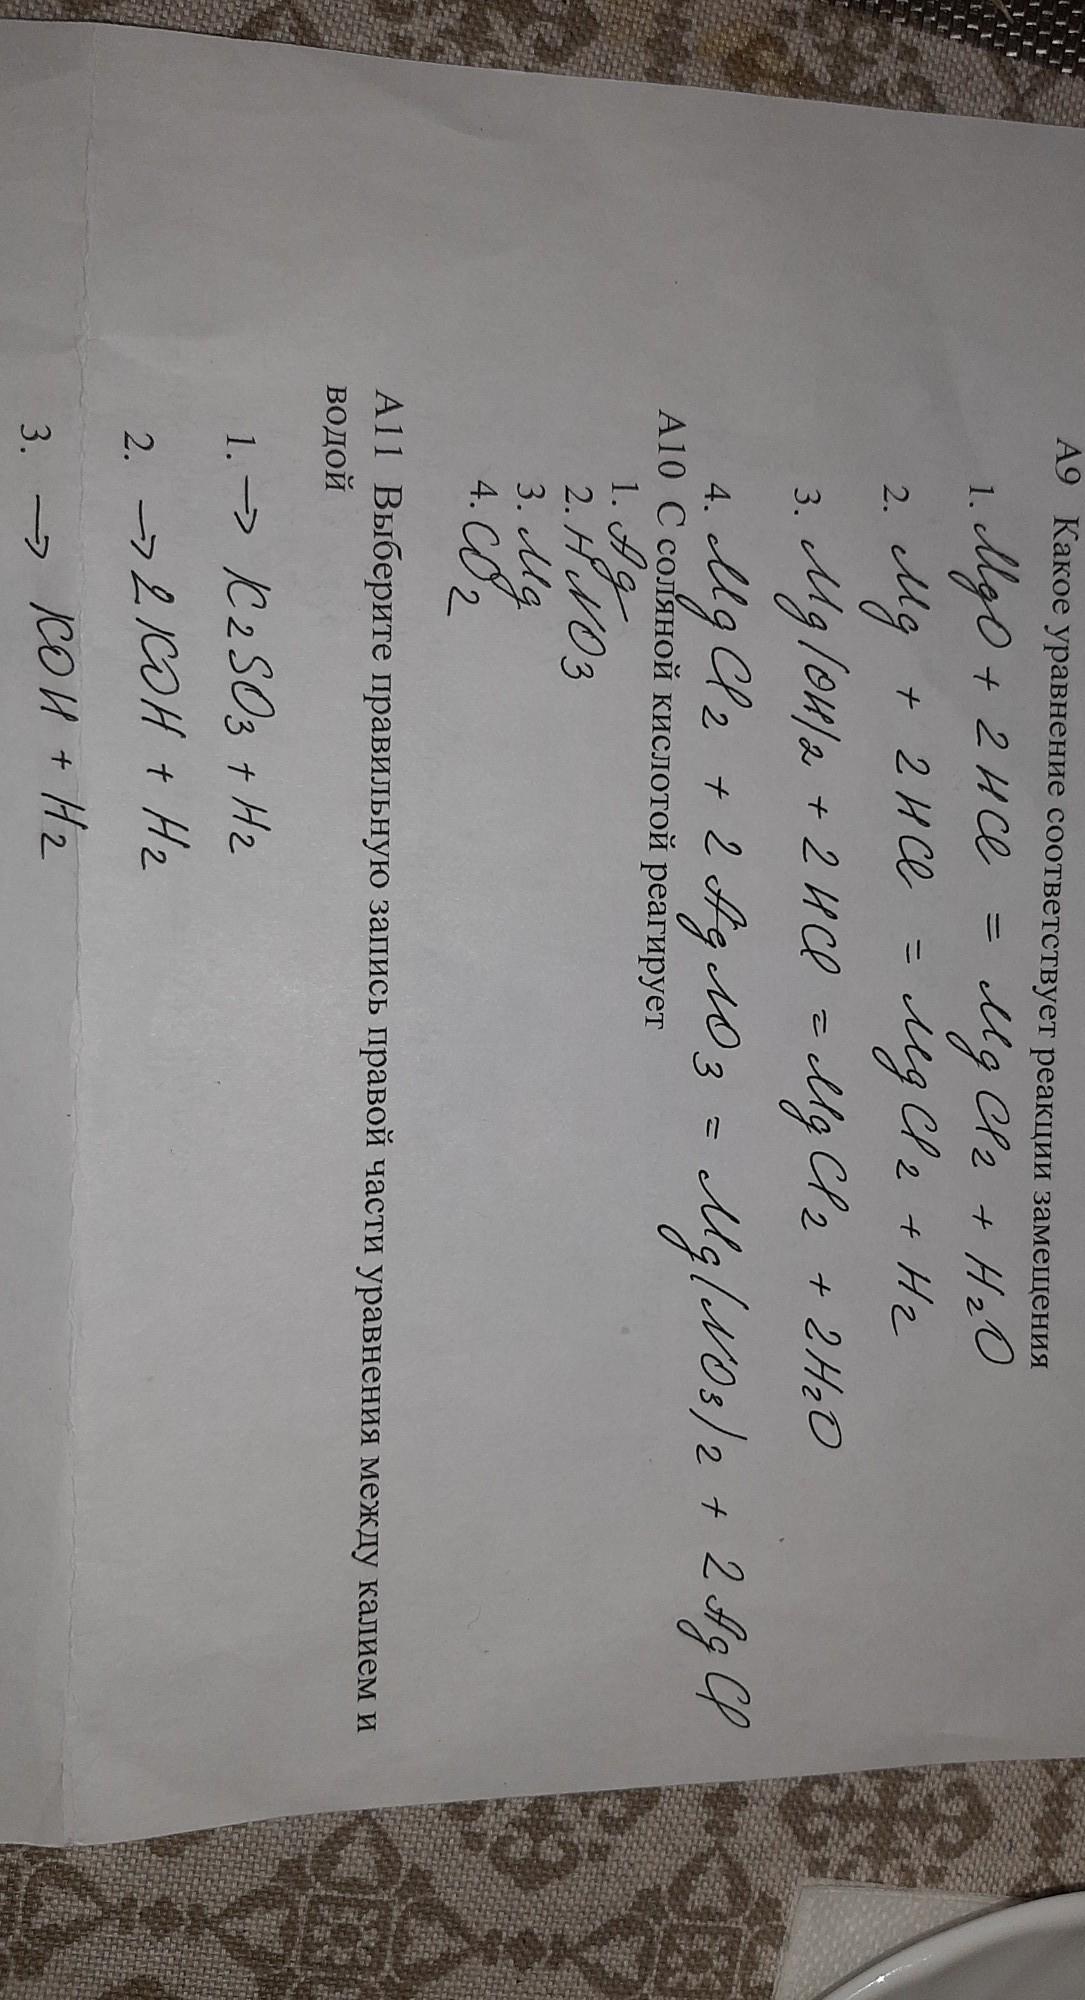 А9 Какое уравнение соответствует реакции замещения
1. MgO + 2HCl = MgCl2 + H2O
2. Mg + 2HCl = MgCl2 + H2
3. Mg(OH)2 + 2HCl = MgCl2 + 2H2O
4. MgCl2 + 2AgNO3 = Mg(NO3)2 + 2AgCl
А10 С соляной кислотой реагирует
1. Ag
2. HNO3
3. Mg
4. CO2
А11 Выберите правильную запись правой части уравнения между калием и
водой
1. → K2SO3 + H2
2. → 2KOH + H2
3. → KOH + H2